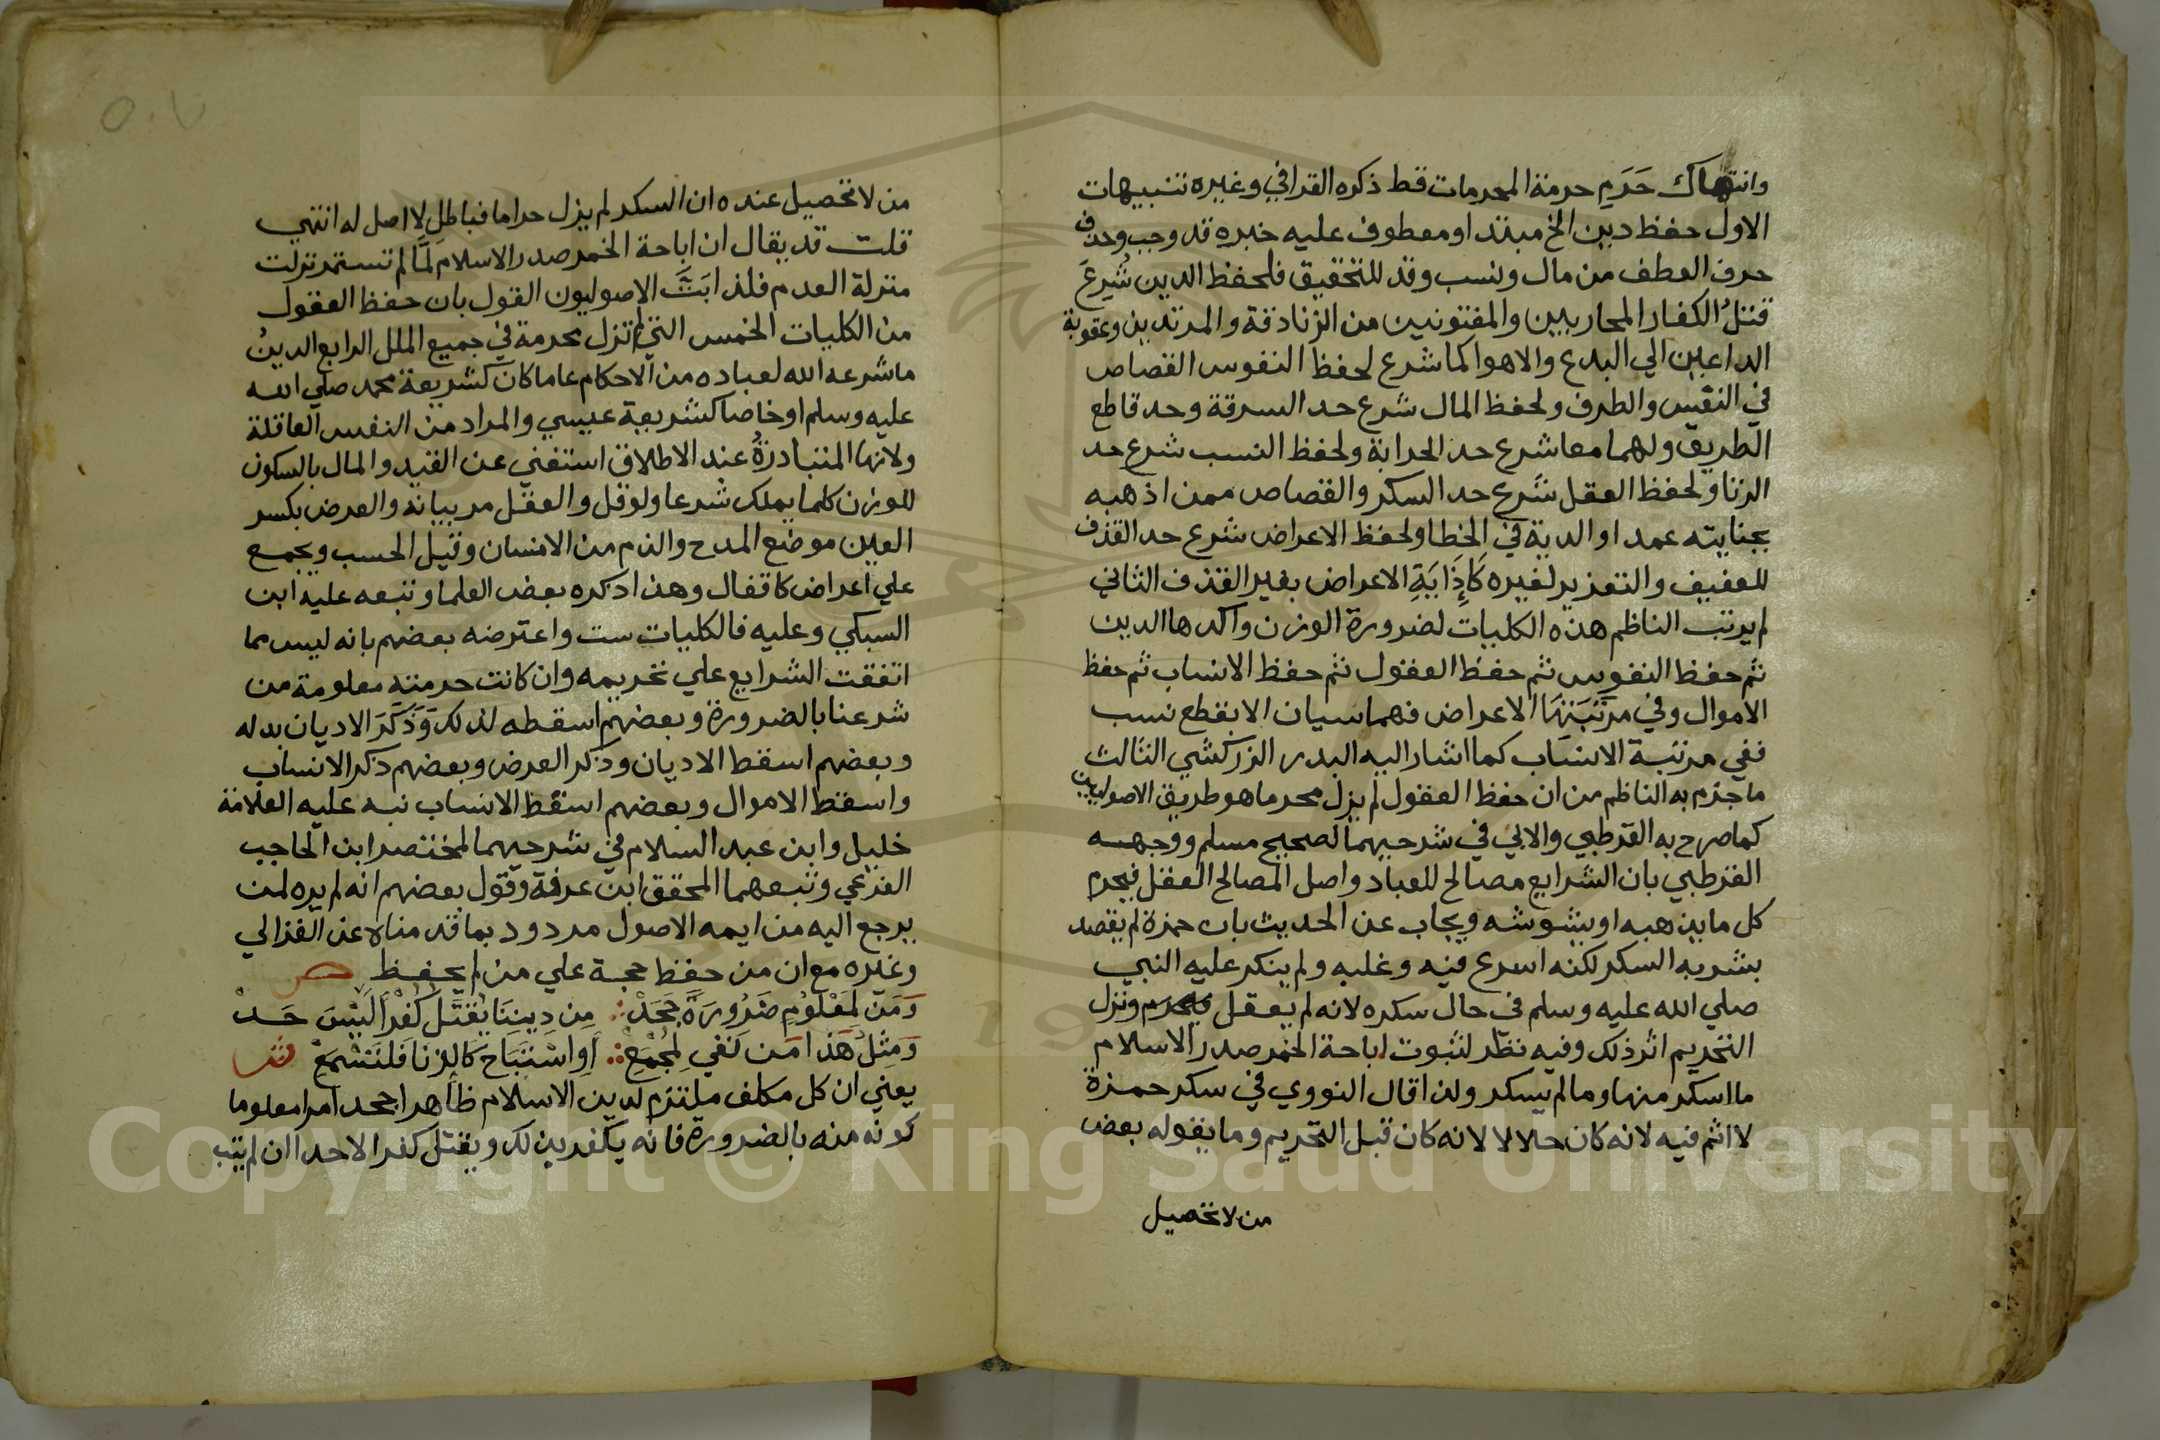 وانتهاك حَرَمِ حرمة المحرمات قط ذكره القرافي وغيره تنبيهات
الاول حفظ دين الخ مبتدا ومعطوف عليه خبره قد وجب وحذف
حرف العطف من مال ونسب وقد للتحقيق فلحفظ الدين شُرِعَ
قتلُ الكفار المحاربين والمفتونين من الزنادقة والمرتدين وعقوبة
الداعين الي البدع والاهوا كما شرع لحفظ النفوس القصاص
في النفس والطرف ولحفظ المال شرع حد السرقة وحد قاطع
الطريق ولهما معا شرع حد الحرابة ولحفظ النسب شرع حد
الزنا ولحفظ العقل شرع حد السكر والقصاص ممن اذهبه
بجنايته عمدا والدية في الخطا ولحفظ الاعراض شرع حد القذف
للعفيف والتعزير لغيره كَإِذَايَةِ الاعراض بغير القذف الثاني
لم يرتب الناظم هذه الكليات لضرورة الوزن وآكدها الدين
ثم حفظ النفوس ثم حفظ العقول ثم حفظ الانساب ثم حفظ
الاموال وفي مرتبتها الاعراض فهما سيان الا بقطع نسب
ففي مرتبة الانساب كما اشار اليه البدر الزركشي الثالث
ما جزم به الناظم من ان حفظ العقول لم يزل محرما هو طريق الاصوليين
كما صرح به القرطبي والابي في شرحيهما لصحيح مسلم ووجهه
القرطبي بان الشرايع مصالح للعباد واصل المصالح العقل فيحرم
كل ما يذهبه او يشوشه ويجاب عن الحديث بان حمزة لم يقصد
بشربه السكر لكنه اسرع فيه وغلبه ولم ينكر عليه النبي
صلي الله عليه وسلم في حال سكره لانه لم يعقل ونزل
التحريم اثر ذلك وفيه نظر لثبوت اباحة الخمر صدر الاسلام
ما اسكر منها وما لم يسكر ولذا قال النووي في سكر حمزة
لا اثم فيه لانه كان حلالا لانه كان قبل التحريم وما يقوله بعض
من لا تحصيل
من لا تحصيل عنده ان السكر لم يزل حراما فباطل لا اصل له انتهي
قلت قد يقال ان اباحة الخمر صدر الاسلام لَمَّا لم تستمر نزلت
منزلة العدم فلذا ابَتَّ الاصوليون القول بان حفظ العقول
من الكليات الخمس التي لم تزل محرمة في جميع الملل الرابع الدينُ
ما شرعه الله لعباده من الاحكام عاما كان كشريعة محمد صلي الله
عليه وسلم او خاصا كشريعة عيسي والمراد من النفس العاقلة
ولانها المتبادرةُ عند الاطلاق استغني عن القيد والمال بالسكون
للوزن كلما يملك شرعا ولو قل والعقل مر بيانه والعرض بكسر
العين موضع المدح والذم من الانسان وقيل الحسب ويجمع
علي اعراض كاقفال وهذا ذكره بعض العلما وتبعه عليه ابن
السبكي وعليه فالكليات ست واعترضه بعضهم بانه ليس مما
اتفقت الشرايع علي تحريمه وان كانت حرمته معلومة من
شرعنا بالضرورة وبعضهم اسقطه لذلك وَذَكَرَ الاديان بدله
وبعضهم اسقط الاديان وذكر العرض وبعضهم ذكر الانساب
واسقط الاموال وبعضهم اسقط الانساب نبه عليه العلامة
خليل وابن عبد السلام في شرحيهما لمختصر ابن الحاجب
الفرعي وتبعهما المحقق ابن عرفة وقول بعضهم انه لم يره لمن
يرجع اليه من ايمه الاصول مردود بما قدمناه عن الغزالي
وغيره مع ان من حفظ حجة علي من لم يحفظ ص
وَمَن لِمَعْلُومٍ ضَرُورَةً جَحَدْ ∴ مِن دِينِنَا يُقتَلُ كُفْرًا لَيْسَ حَدْ
وَمِثلُ هَذَا مَن نَفي لِمُجْمَعِ ∴ أَوِ اسْتَبَاحَ كَالزِنَا فَلتَسْمَعْ ش
يعني ان كل مكلف ملتزم لدين الاسلام ظاهرا جحد امرا معلوما
كونه منه بالضرورة فانه يكفر بذلك ويقتل كفرا لا حدا ان لم يتب
Copyright © King Saud University